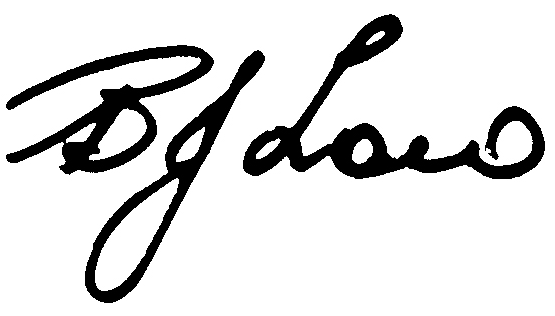 BJ Law